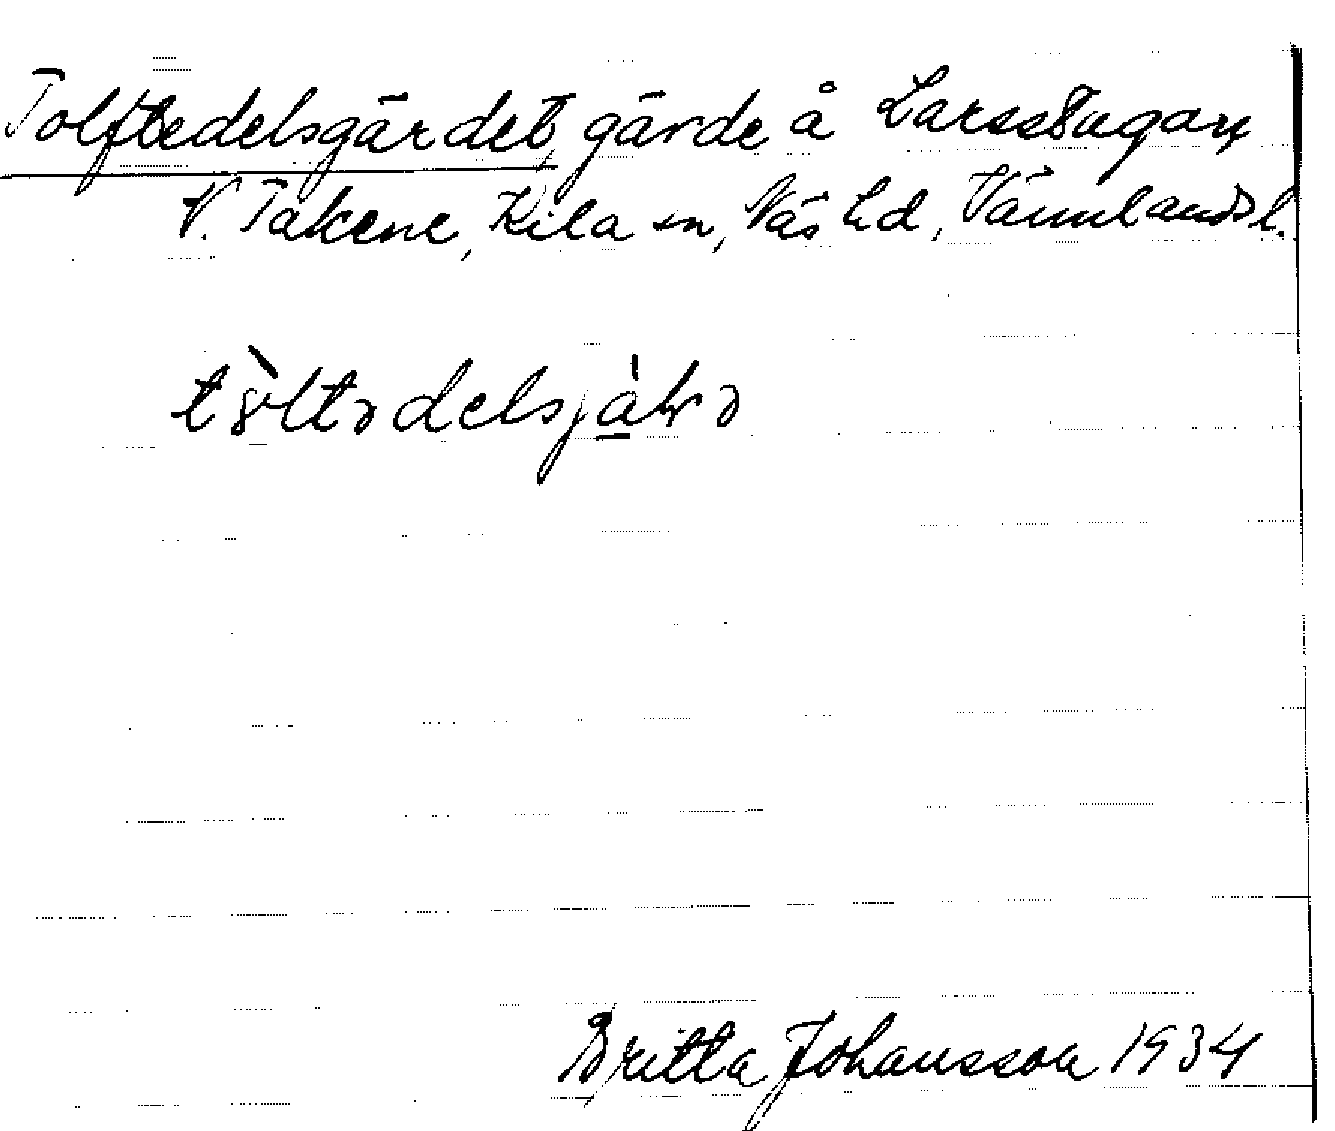 Tolftedelsgärdet, gärde å Larsstugan
V. Takene, Kila sn, Näs hd, Värmlands l.
tö̀ltədelsjäḷə
Britta Johansson 1934